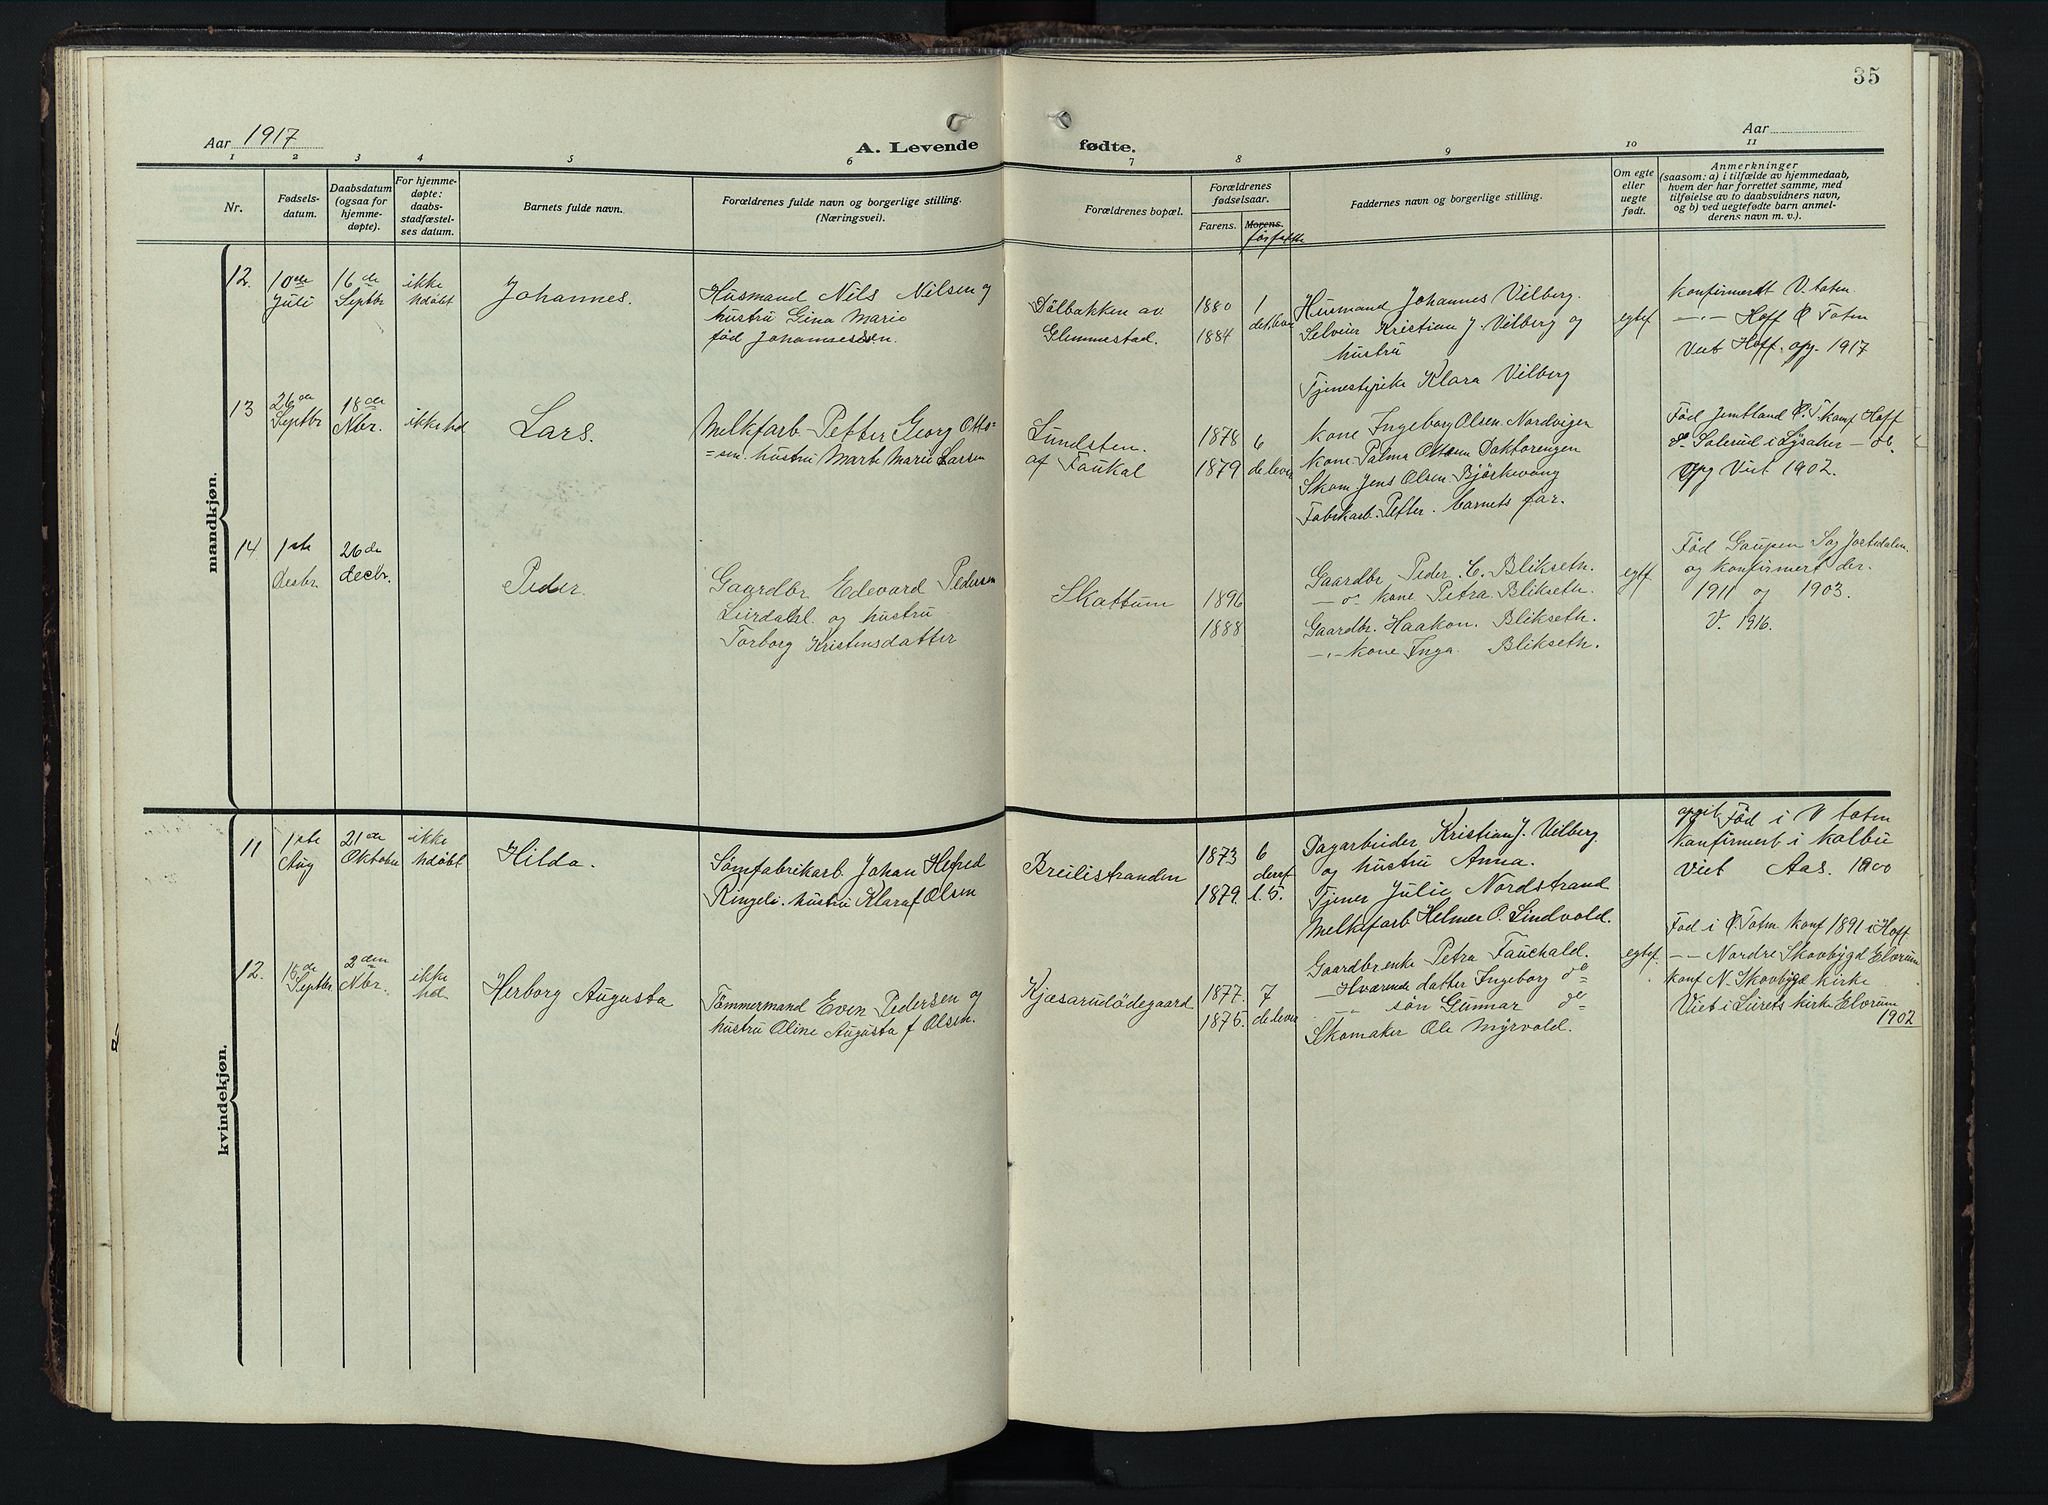 35
Aar 1917
A. Levende
fødte.
Aar
1 2 3 4 5 6 7 8 9 10 11
Nr.
Fødsels-
datum.
Daabsdatum
(ogsaa for
hjemme-
døpte).
For hjemme-
døpte:
daabs-
stadfæstel-
ses datum.
Barnets fulde navn.
Forældrenes fulde navn og borgerlige stilling.
(Næringsvei).
Forældrenes bopæl.
Forældrenes
fødselsaar.
Farens. Morens.
Faddernes navn og borgerlige stilling.
Om egte
eller
uegte
født.
Anmerkninger
(saasom: a) i tilfælde av hjemmedaab,
hvem der har forrettet samme, med
tilføielse av to daabsvidners navn,
og b) ved uegtefødte barn anmel-
derens navn m. v.).
mandkjøn.
12. 10de
Juli
16de
Septbr
ikke
hdöbt
Johannes.
Husmand Nils Nilsen og
hustru Gina Marie
fød Johannessen.
Sölbakken av
Glemmestad.
1880
1884
1
Husmand Johannes Vilberg.
Selveier Kristian J. Vilberg og
hustru
Tjenestepike Klara Vilberg
egtef
Konfirmert V. toten
—„— Hoff Ø Toten
Viet Hoff. 1917
13 26de
Septbr
18de
Nbr.
ikke hd.
Lars.
Melkfarb. Petter Georg Otto=
=sen. hustru Marte Marie Larsen
Lundsten.
af Faukal
1878
1879
6
de lever
Kone Ingeborg Olsen Nordvigen
Kone Palma Ottosen Doktorengen
Skom Jens Olsen Björkevang
Fabrkarb. Petter. barnets far.
Fød Jemtland Ø. T. konf Hoff
do Solerud i Lysaker — do.
og Viet 1902.
14 1ste
desbr
26de
decbr.
Peder.
Gaardbr Edevard Pedersen
Leirdahl. og hustru
Torborg Kristensdatter
Skattum
1896
1888
Gaardbr Peder. C. Blikseth.
— do Kone Petra Blikseth.
Gaardbr. Haakon. Blikseth.
—„— Kone Inga. Blikseth.
egtf
Fød Gaupen Sog Jostedalen
og konfirmert der.
1911 og 1903.
V. 1916.
kvindekjøn.
11 1ste
Aug
21de
Oktober
ikke
hdöbt
Hilda.
Sömfabrikarb. Johan Hefred
Ringeli. hustru Klara f Olsen
Breilistranden
1873
1879.
6
l. 5.
Dagarbeider Kristian J. Vilberg.
og hustru Anna.
Tjener Julie Nordstrand
Melkefarb. Helmer O. Lindvold.
Fød i V toten
Konfirmert i Kolbu
Viet Aas. 1900
12. 15de
Septbr
2den
Nbr.
ikke
hd
Herborg Augusta
Tömmermand Even Pedersen og
hustru Oline Augusta f Olsen.
Kjæsarudödegaard
1877.
1875.
7
de lever
Gaardbrenke Petra Fauchald.
— Hværende datter Ingeborg do
„ sön Gunnar do
Skomaker Ole Myrvold.
egtef.
Fød i Ø. Toten konf 1891 i Hoff
—„— Nordre Skovbygd Elverum
konf N. Skovbygd kirke
Viet i Lurets kirke Elverum
1902